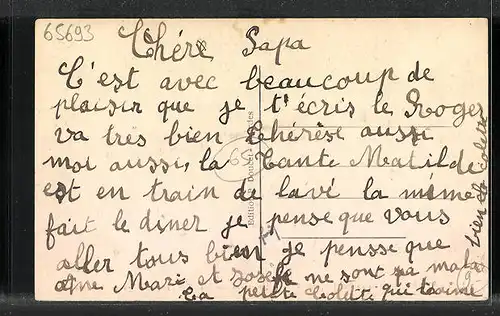 65693
Chére Papa
C'est avec beaucoup de
plaisir que je t'écris le Roger
va tres bien Thérèse aussi
moi aussi, la Tante Matilde
est en train de lavé la mémé
fait le diner je pense que vous
aller tous bien je pensse que
Mari et Josefe ne sont pa malade
La petite Colette qui t'aime
bien Colette